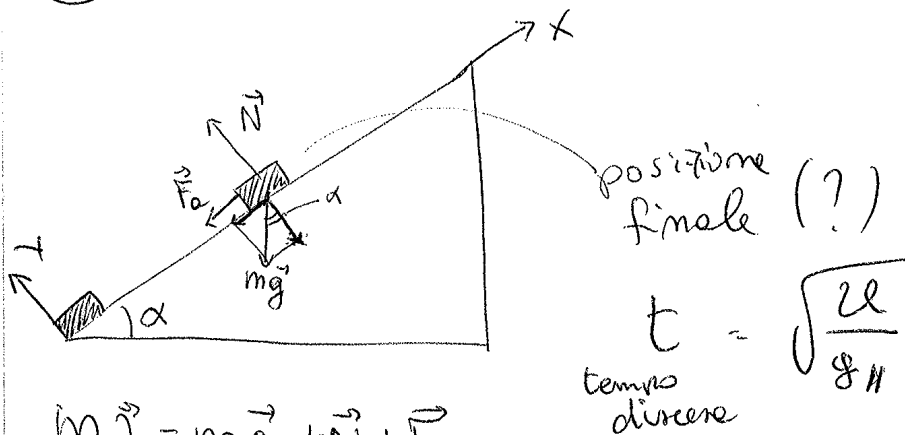 X
N⃗
F⃗a
α
posizione
finale (?)
mg⃗
Y
α
t = √2l/g∥
tempo
discesa